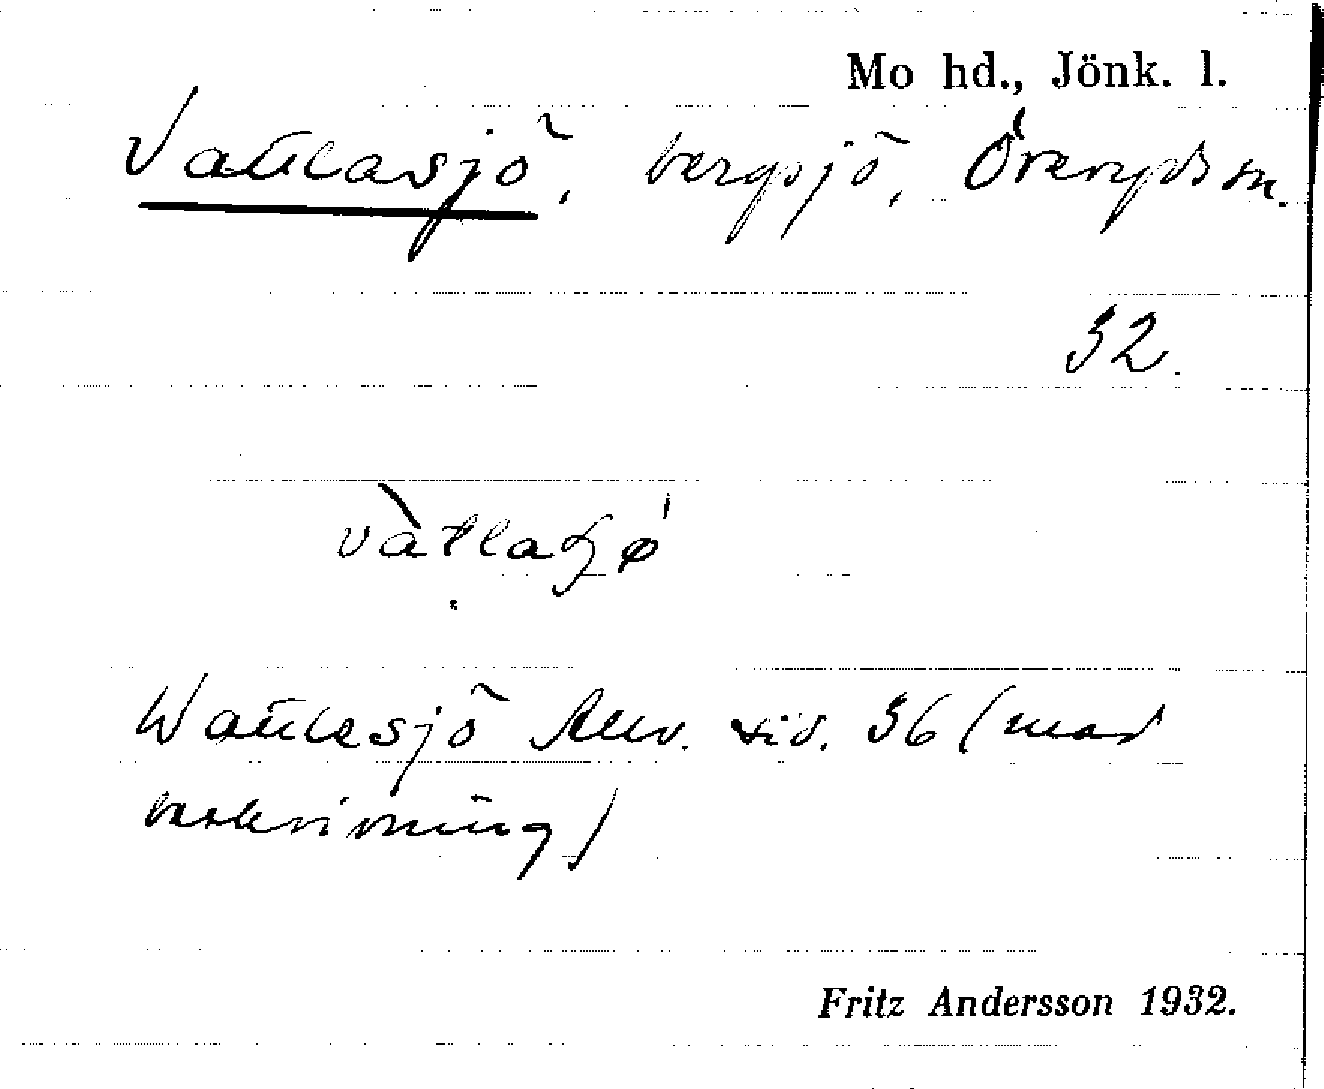 Mo hd., Jönk. l.
Vattlasjö, bergsjö, Öreryds sn.
32.
vàtlaɧø
Wattlesjö Allv. sid. 36 (med
beskrivning)
Fritz Andersson 1932.